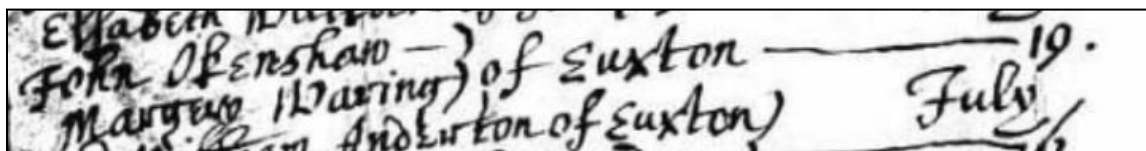 Ellabeth
John Okenshaw — } of Euxton — 19.
Margery Waring }
July
Anderton of Euxton)